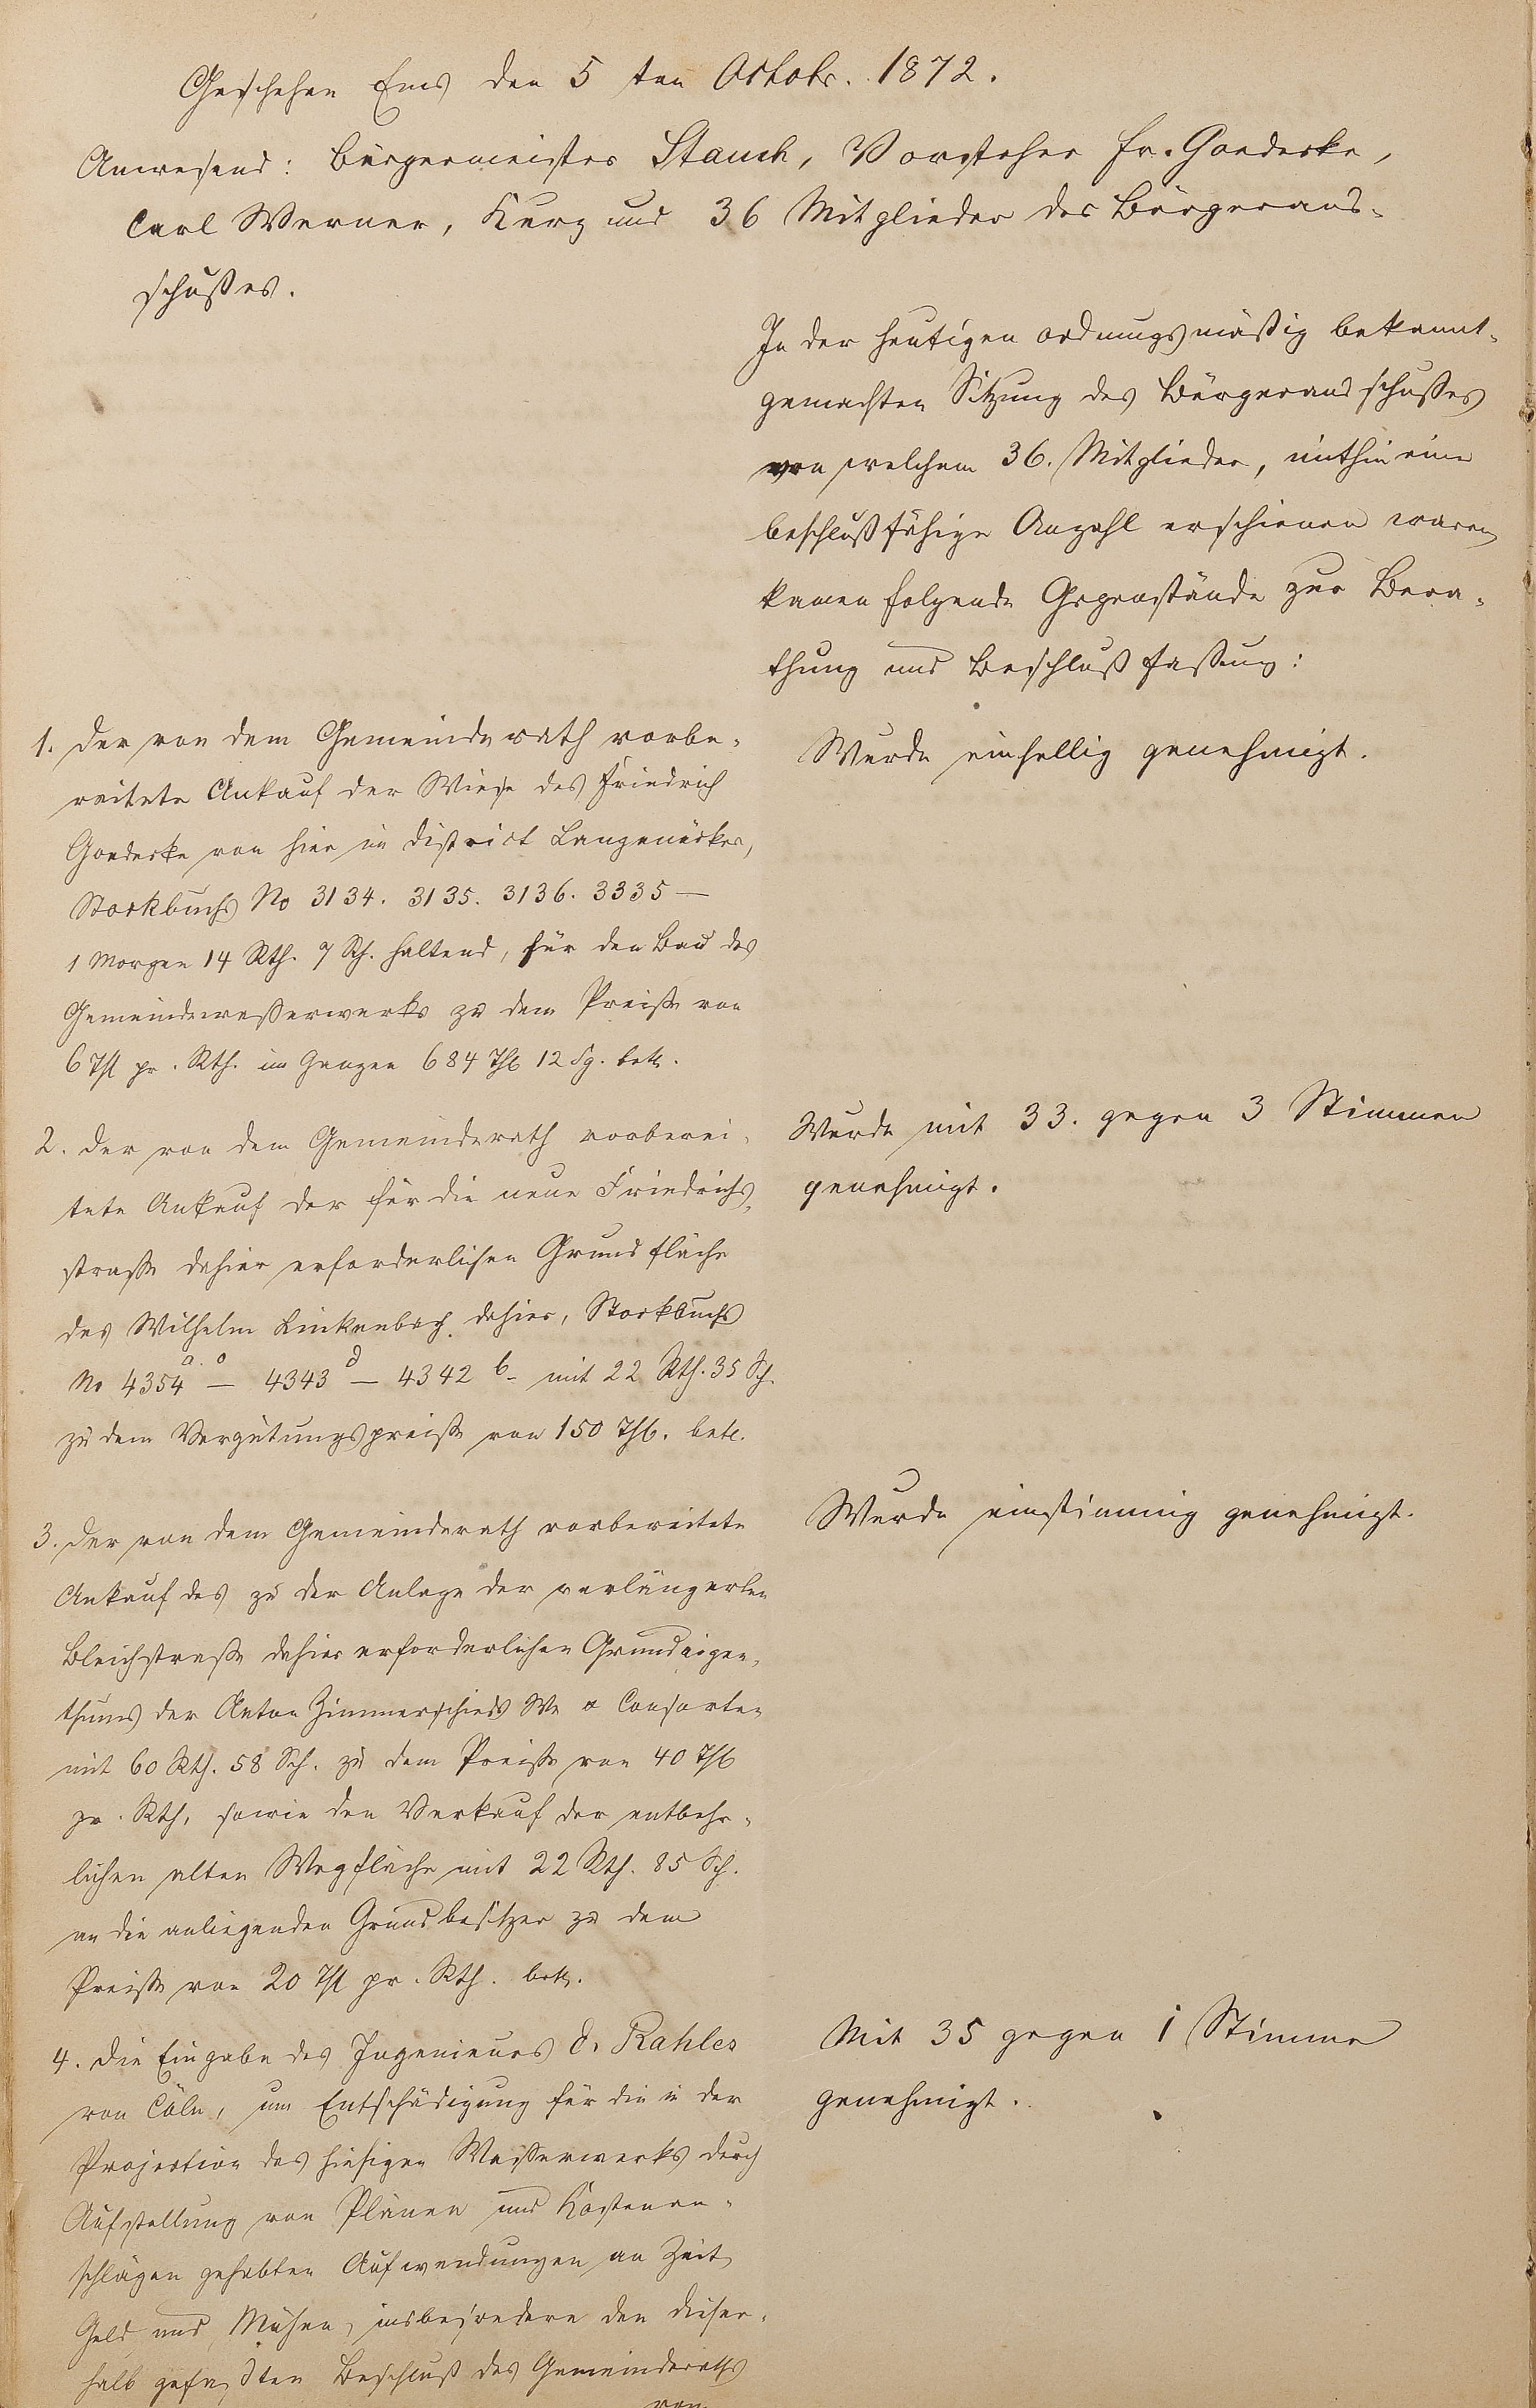 Geschehen Ems den 5 ten Octobr. 1872.
Anwesend: Bürgermeister Stauch, Vorsteher Fr. Goedecke,
Carl Werner, Kurz und 36 Mitglieder des Bürgeraus-
schußes.
In der heutigen ordnungsmäßig bekannt-
gemachten Sitzung des Bürgerausschußes
von welchem 36. Mitglieder, mithin eine
beschlußfähige Anzahl erschienen waren
kamen folgende Gegenstände zur Bera-
thung und Beschlußfassung:
1. Der von dem Gemeinderath vorbe-
reitete Ankauf der Wiese des Friedrich
Goedecke von hier im District Langenäcker,
Stockbuchs No 3134. 3135. 3136. 3335 —
1 Morgen 14 Rth. 7 Sch. haltend, für den Bau des
Gemeindewasserwerks zu dem Preiße von
6 Thl pr. Rth. im Ganzen 684 Thl 12 Sg. betr.
Wurde einhellig genehmigt.
2. Der von dem Gemeinderath vorberei-
tete Ankauf der für die neue Friedrichs-
straße dahier erforderlichen Grundfläche
des Wilhelm Linkenbach dahier, Stockbuchs
No 4354 a. c — 4343 d — 4342 b - mit 22 Rth. 35 Sch.
zu dem Vergütungspreiße von 150 Thl. betr.
Wurde mit 33. gegen 3 Stimmen
genehmigt.
3. Der von dem Gemeinderath vorbereitete
Ankauf des zu der Anlage der verlängerten
Bleichstraße dahier erforderlichen Grundeigen-
thums der Anton Zimmerschieds We & Consorten
mit 60 Rth. 58 Sch. zu dem Preiße von 40 Thl
pr. Rth, sowie den Verkauf der entbehr-
lichen alten Wegfläche mit 22 Rth. 85 Sch.
an die anliegenden Grundbesitzer zu dem
Preiße von 20 Thl pr. Rth. betr.
Wurde einstimmig genehmigt.
4. Die Eingabe des Ingenieurs C. Rahles
von Cöln, um Entschädigung für die in der
Projection des hiesigen Wasserwerks durch
Aufstellung von Plänen und Kostenan-
schlägen gehabten Aufwendungen an Zeit,
Geld und Mühen, insbesondere den dieser-
halb gefaßten Beschluß des Gemeinderaths
von
Mit 35 gegen 1 Stimme
genehmigt.